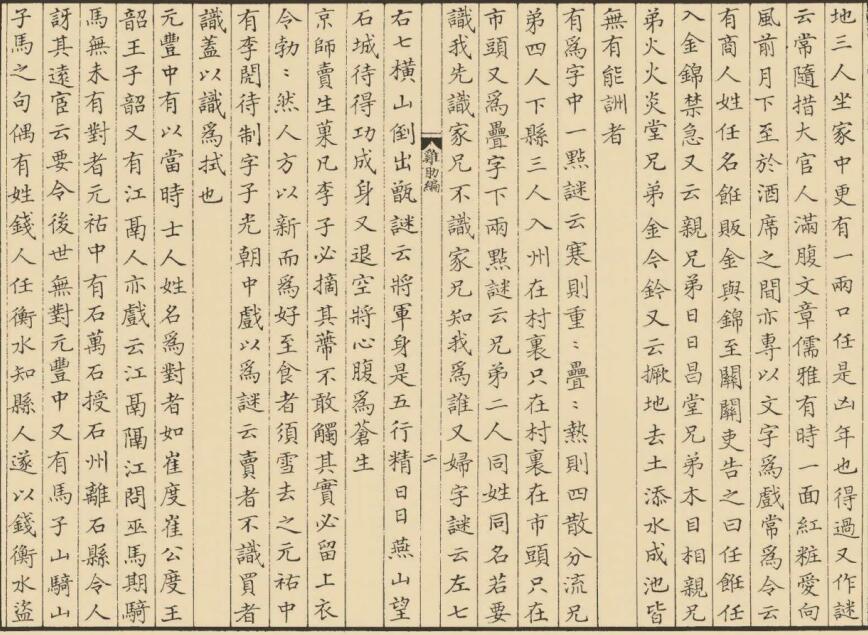 地三人坐家中更有一兩口任是凶年也得過又作謎
云常隨措大官人滿腹文章儒雅有時一面紅粧愛向
風前月下至於酒席之間亦專以文字爲戲常爲令云
有商人姓任名餁販金與錦至關關吏告之曰任餁任
入金錦禁急又云親兄弟日日昌堂兄弟木目相親兄
弟火火炎堂兄弟金今鈐又云撅地去土添水成池皆
無有能詶者
有爲字中一點謎云寒則重〻疊〻熱則四散分流兄
弟四人下縣三人入州在村裏只在村裏在市頭只在
市頭又爲疊字下兩點謎云兄弟二人同姓同名若要
識我先識家兄不識家兄知我爲誰又婦字謎云左七
雞肋編
二
右七橫山倒出甑謎云將軍身是五行精日日燕山望
石城待得功成身又退空將心腹爲蒼生
京師賣生菓凡李子必摘其蔕不敢觸其實必留上衣
令勃〻然人方以新而爲好至食者須雪去之元祐中
有李閌待制字子光朝中戲以爲謎云賣者不識買者
識蓋以識爲拭也
元豐中有以當時士人姓名爲對者如崔度崔公度王
韶王子韶又有江鬲人亦戲云江鬲隔江問巫馬期騎
馬無未有對者元祐中有石萬石授石州離石縣令人
訝其遠宦云要令後世無對元豐中又有馬子山騎山
子馬之句偶有姓錢人任衡水知縣人遂以錢衡水盜